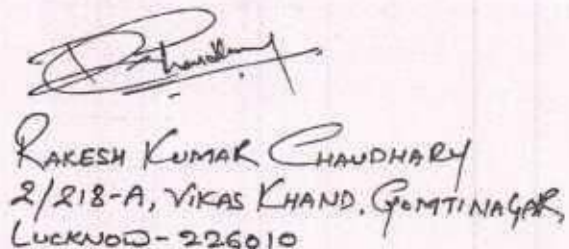 RAKESH KUMAR CHAUDHARY
2/218-A, VIKAS KHAND, GOMTINAGAR,
LUCKNOW-226010